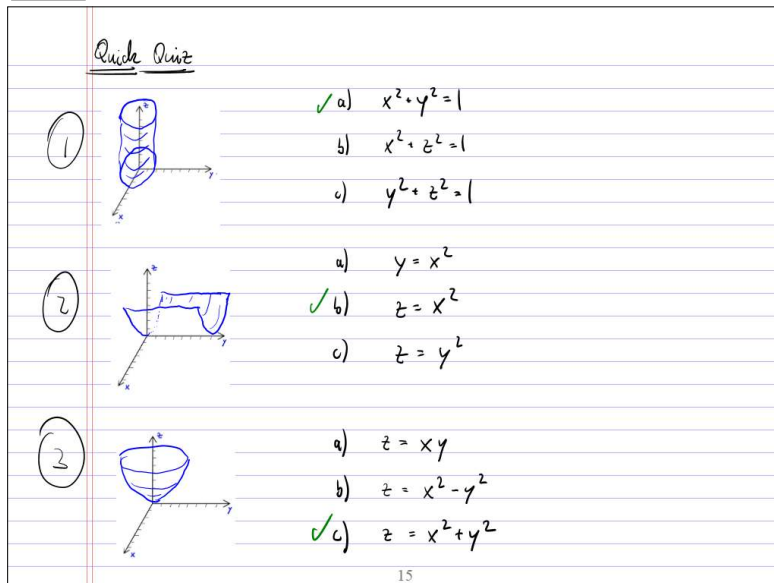 Quick Quiz
1
z
y
x
✓ a) x² + y² = 1
b) x² + z² = 1
c) y² + z² = 1
2
z
y
x
a) y = x²
✓ b) z = x²
c) z = y²
3
z
y
x
a) z = xy
b) z = x² - y²
✓ c) z = x² + y²
15